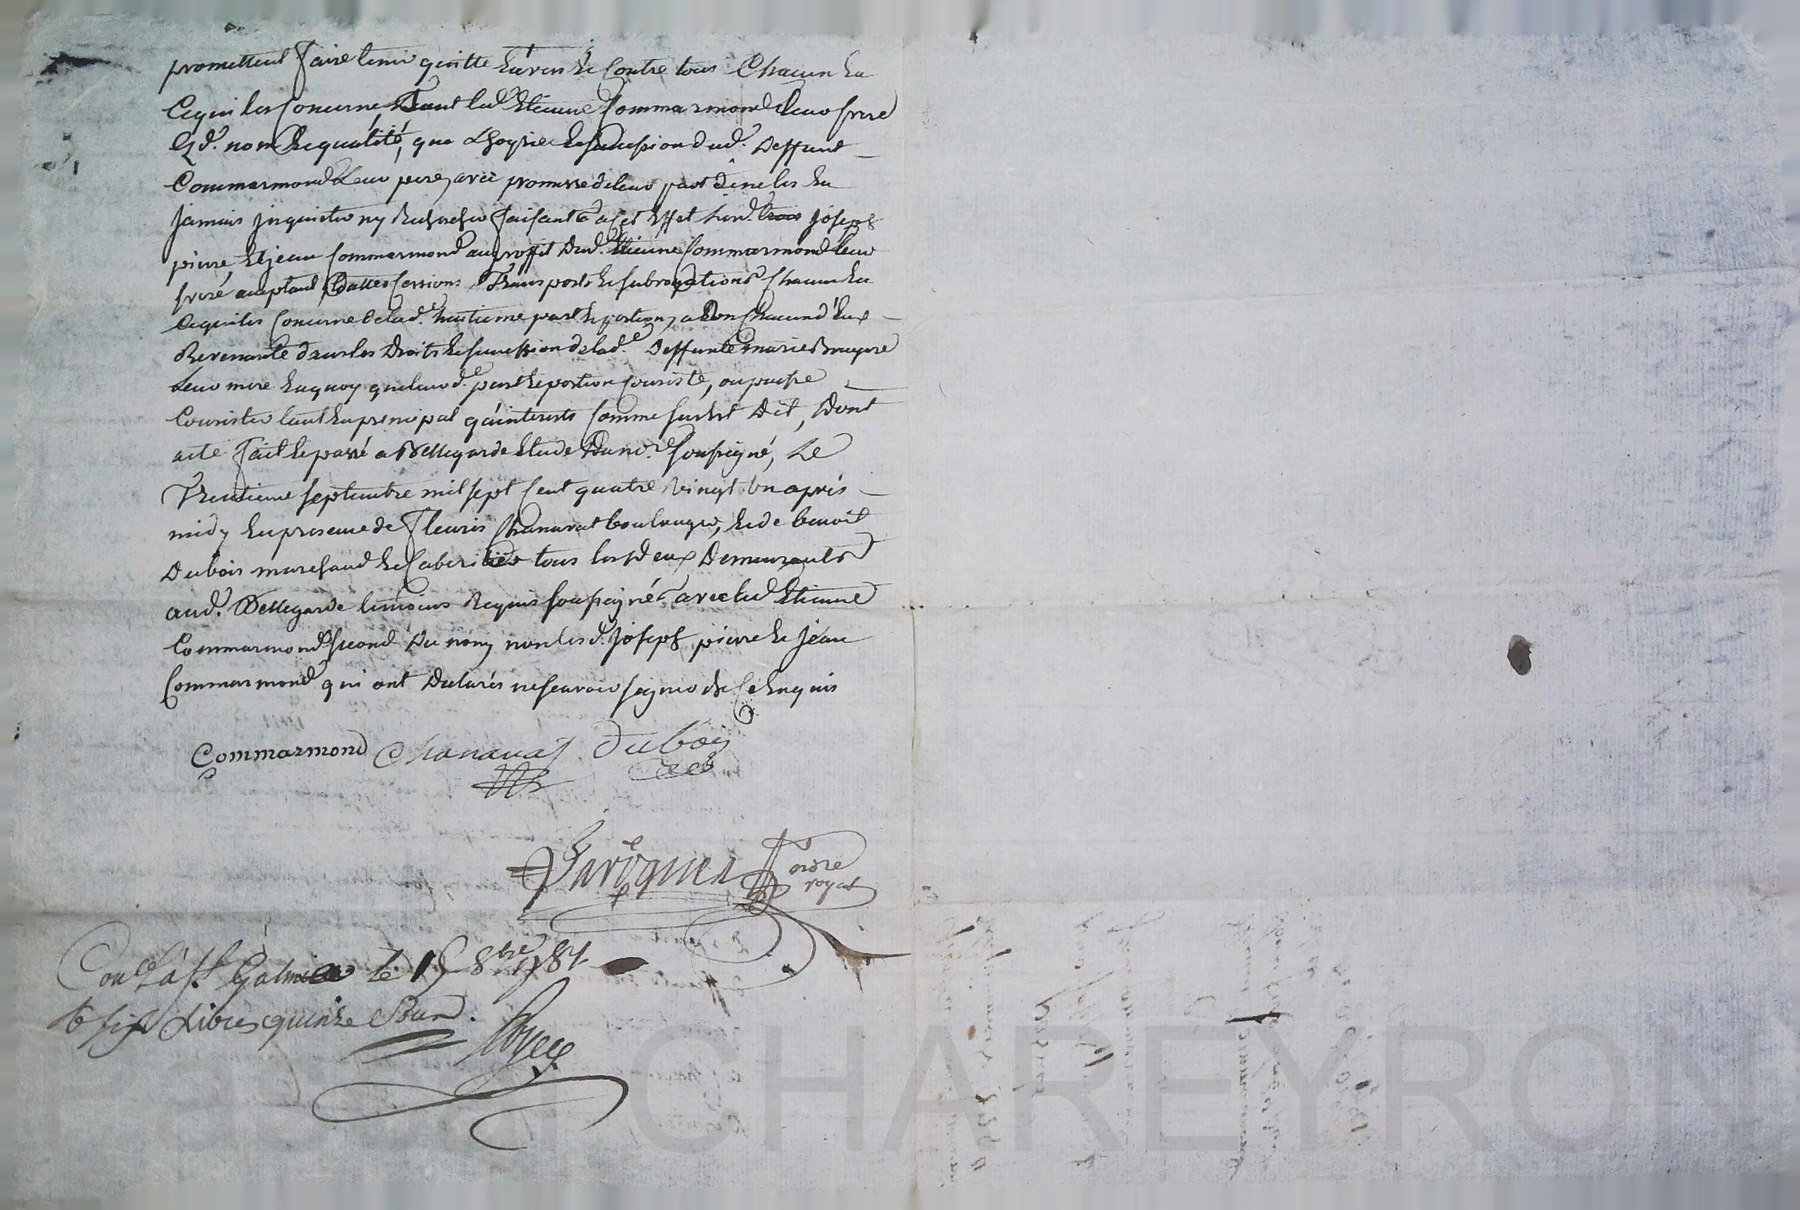 promettent faire tenir quitte Envers Et Contre tous Chacun En
Cequi les Concerne, Tant led. Etienne Commarmond leur frere
Qd. nom Et qualité, que L'hoyrie Et succession dud. Deffunt
Commarmond Leur pere, avec promesse de leur part de ne les En
Jamais Jnquieter ny Rechercher faisant a Cet Effet lesd. trois Joseph
pierre Et jean Commarmond au proffit Dud. Etienne Commarmond leur
freré acceptant Cessions Transports Et subrogations Chacun En
Cequi les Concerne Delad. huitieme part Et portion, a Un Chacun d'Eux
Revenante dans les Droits Et succession delad.e Deffunte marie Bruyere
Leur mere En quoy que leurd.e part Et portion Consiste, ou puisse
Consister tant En principal qu'interests Comme susest Dit, Dont
acte fait Et passé a Bellegarde Etude Du no.re soussigné, Le
Trentieme septembre mil sept Cent quatre vingt Un après
midy En presence de Fleuris Chanavat boulanger, Et de benoit
Dubois marechand Et Cabaretier tous les Deux Demeurants
aud. Bellegarde temoins Requis soussignés avec led. Etienne
Commarmond second Du nom, non lesd. Joseph, pierre Et Jean
Commarmond qui ont Declarés ne scavoir signer de Ce Enquis
Commarmond Chanavat Dubois
no.re
royal
Con.lé à S.t Galmier le 15 8bre 1781
six Livres quinze Sous.
Pascal CHAREYRON